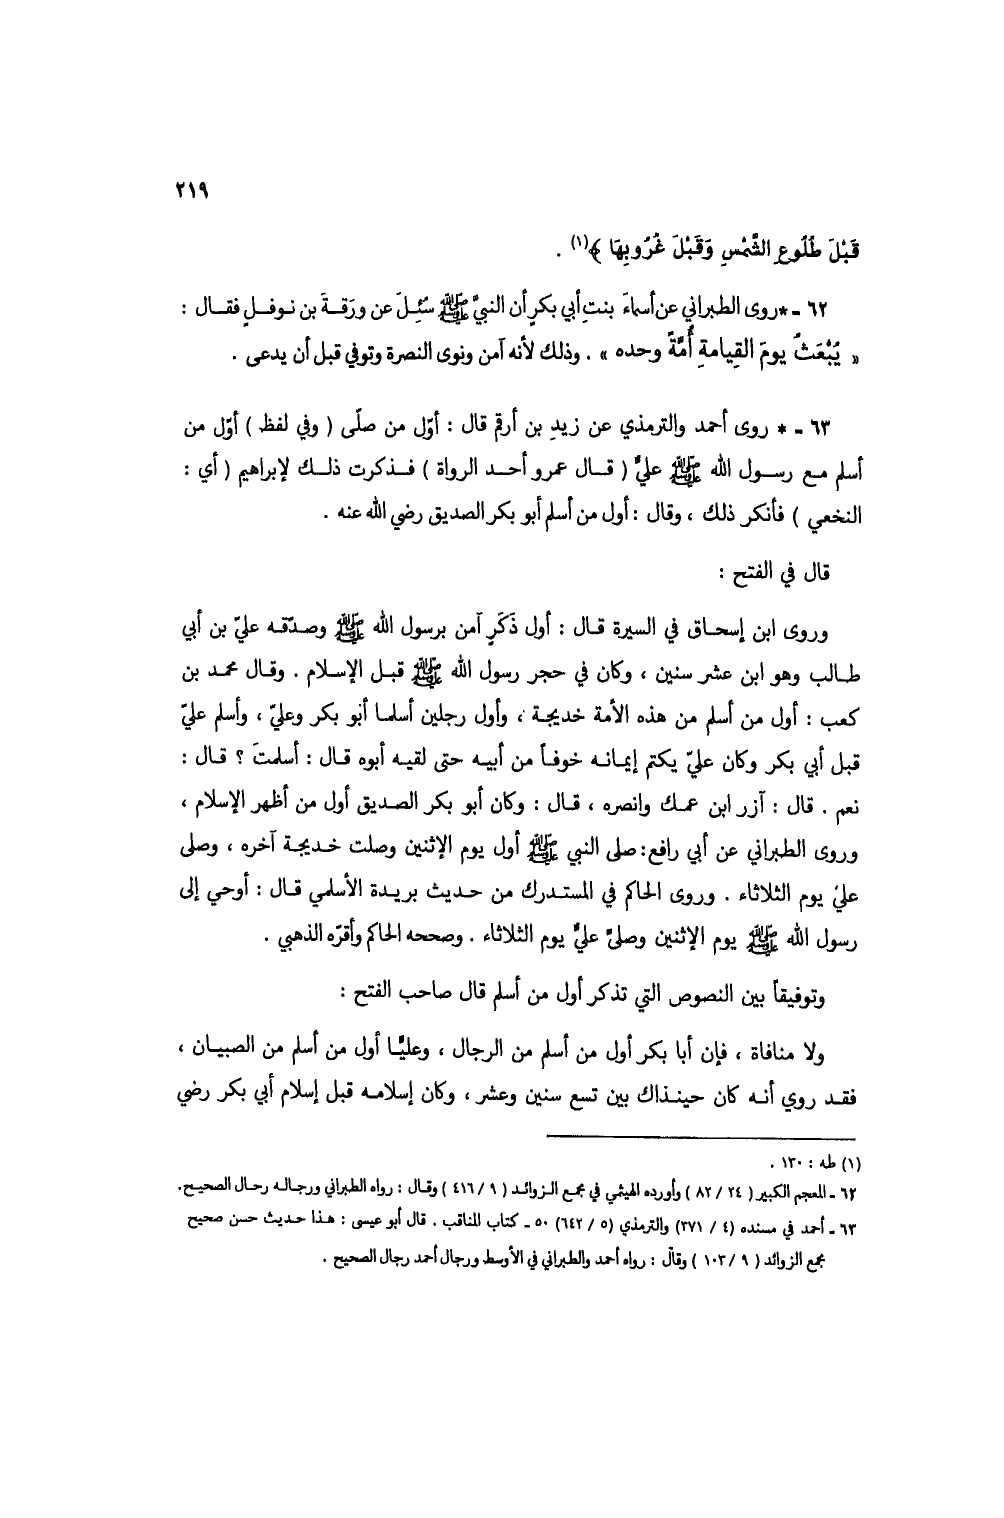 ٢١٩
قَبْلَ طُلُوعِ الشَّمْسِ وَقَبْلَ غُرُوبِهَا ﴾(١) .
٦٢ - *روى الطبراني عن أسماءَ بنتِ أبي بكرٍ أن النبيَّ ﷺ سُئِلَ عن ورَقةَ بن نوفلٍ فقال :
« يُبْعَثُ يومَ القِيامةِ أُمَّةً وحده » . وذلك لأنه آمن ونوى النصرة وتوفي قبل أن يدعى .
٦٣ - * روى أحمد والترمذي عن زيدِ بن أرقم قال : أوّل من صلّى ( وفي لفظ ) أوّل من
أسلم مع رسول الله ﷺ عليٌّ ( قال عمرو أحد الرواة ) فذكرت ذلك لإبراهيم ( أي :
النخعي ) فأنكر ذلك ، وقال : أول من أسلم أبو بكر الصديق رضي الله عنه .
قال في الفتح :
وروى ابن إسحاق في السيرة قال : أول ذَكَرٍ آمن برسول الله ﷺ وصدّقه عليّ بن أبي
طالب وهو ابن عشر سنين ، وكان في حجر رسول الله ﷺ قبل الإسلام . وقال محمد بن
كعب : أول من أسلم من هذه الأمة خديجة ، وأول رجلين أسلما أبو بكر وعليّ ، وأسلم عليّ
قبل أبي بكر وكان عليّ يكتم إيمانه خوفاً من أبيه حتى لقيه أبوه قال : أسلمتَ ؟ قال :
نعم . قال : آزر ابن عمك وانصره ، قال : وكان أبو بكر الصديق أول من أظهر الإسلام ،
وروى الطبراني عن أبي رافع: صلى النبي ﷺ أول يوم الإثنين وصلت خديجة آخره ، وصلى
عليٌ يوم الثلاثاء . وروى الحاكم في المستدرك من حديث بريدة الأسلمي قال : أوحي إلى
رسول الله ﷺ يوم الإثنين وصلىَّ عليٌّ يوم الثلاثاء . وصححه الحاكم وأقرّه الذهبي .
وتوفيقاً بين النصوص التي تذكر أول من أسلم قال صاحب الفتح :
ولا منافاة ، فإن أبا بكر أول من أسلم من الرجال ، وعليًّا أول من أسلم من الصبيان ،
فقد روي أنه كان حينذاك بين تسع سنين وعشر ، وكان إسلامه قبل إسلام أبي بكر رضي
(١) طه : ١٣٠ .
٦٢ - المعجم الكبير ( ٢٤ / ٨٢ ) وأورده الهيثمي في مجمع الزوائد ( ٩ / ٤١٦ ) وقال : رواه الطبراني ورجاله رجال الصحيح.
٦٣ - أحمد في مسنده (٤ / ٣٧١) والترمذي (٥ / ٦٤٢) ٥٠ - كتاب المناقب . قال أبو عيسى : هذا حديث حسن صحيح
مجمع الزوائد ( ٩ / ١٠٣ ) وقال : رواه أحمد والطبراني في الأوسط ورجال أحمد رجال الصحيح .